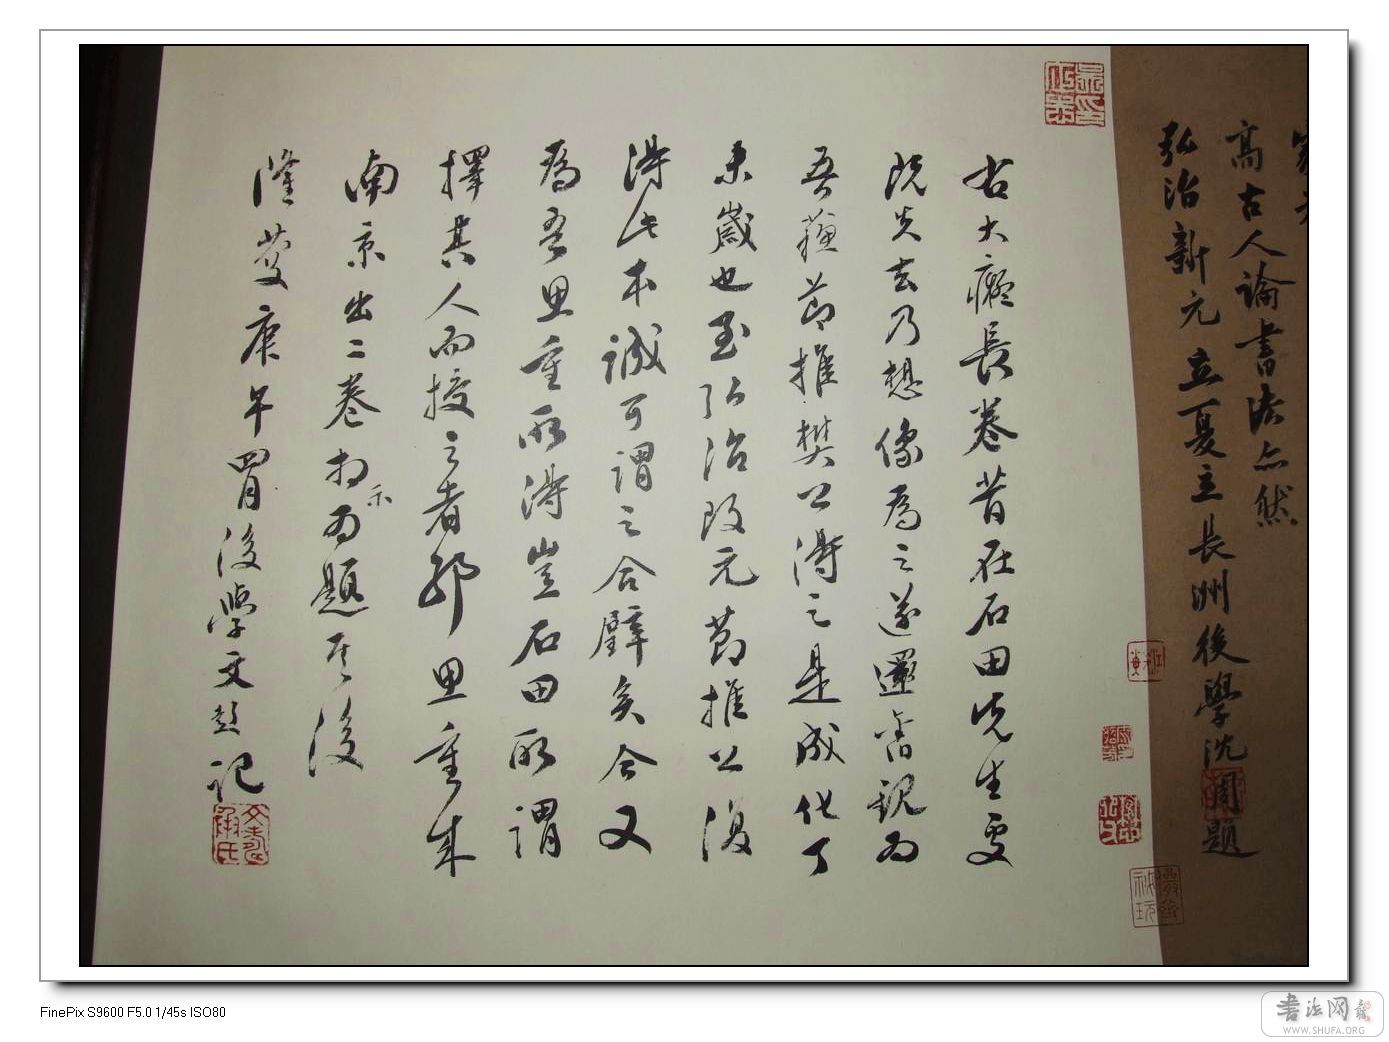 高古人論書法亦然
弘治新元立夏立長洲後學沈周題
右大癡長卷昔在石田先生處
既失去乃想像為之遂還舊觀為
吾蘇節推樊公得之是成化丁
未歲也至弘治改元節推公復
得此本誠可謂之合璧矣今又
為吾思重所得豈石田所謂
擇其人而授之者耶思重來
南京出二卷相示為題其後
隆慶庚午冑後學文彭記
FinePix S9600 F5.0 1/45s ISO80
書法网
WWW.SHUFA.ORG